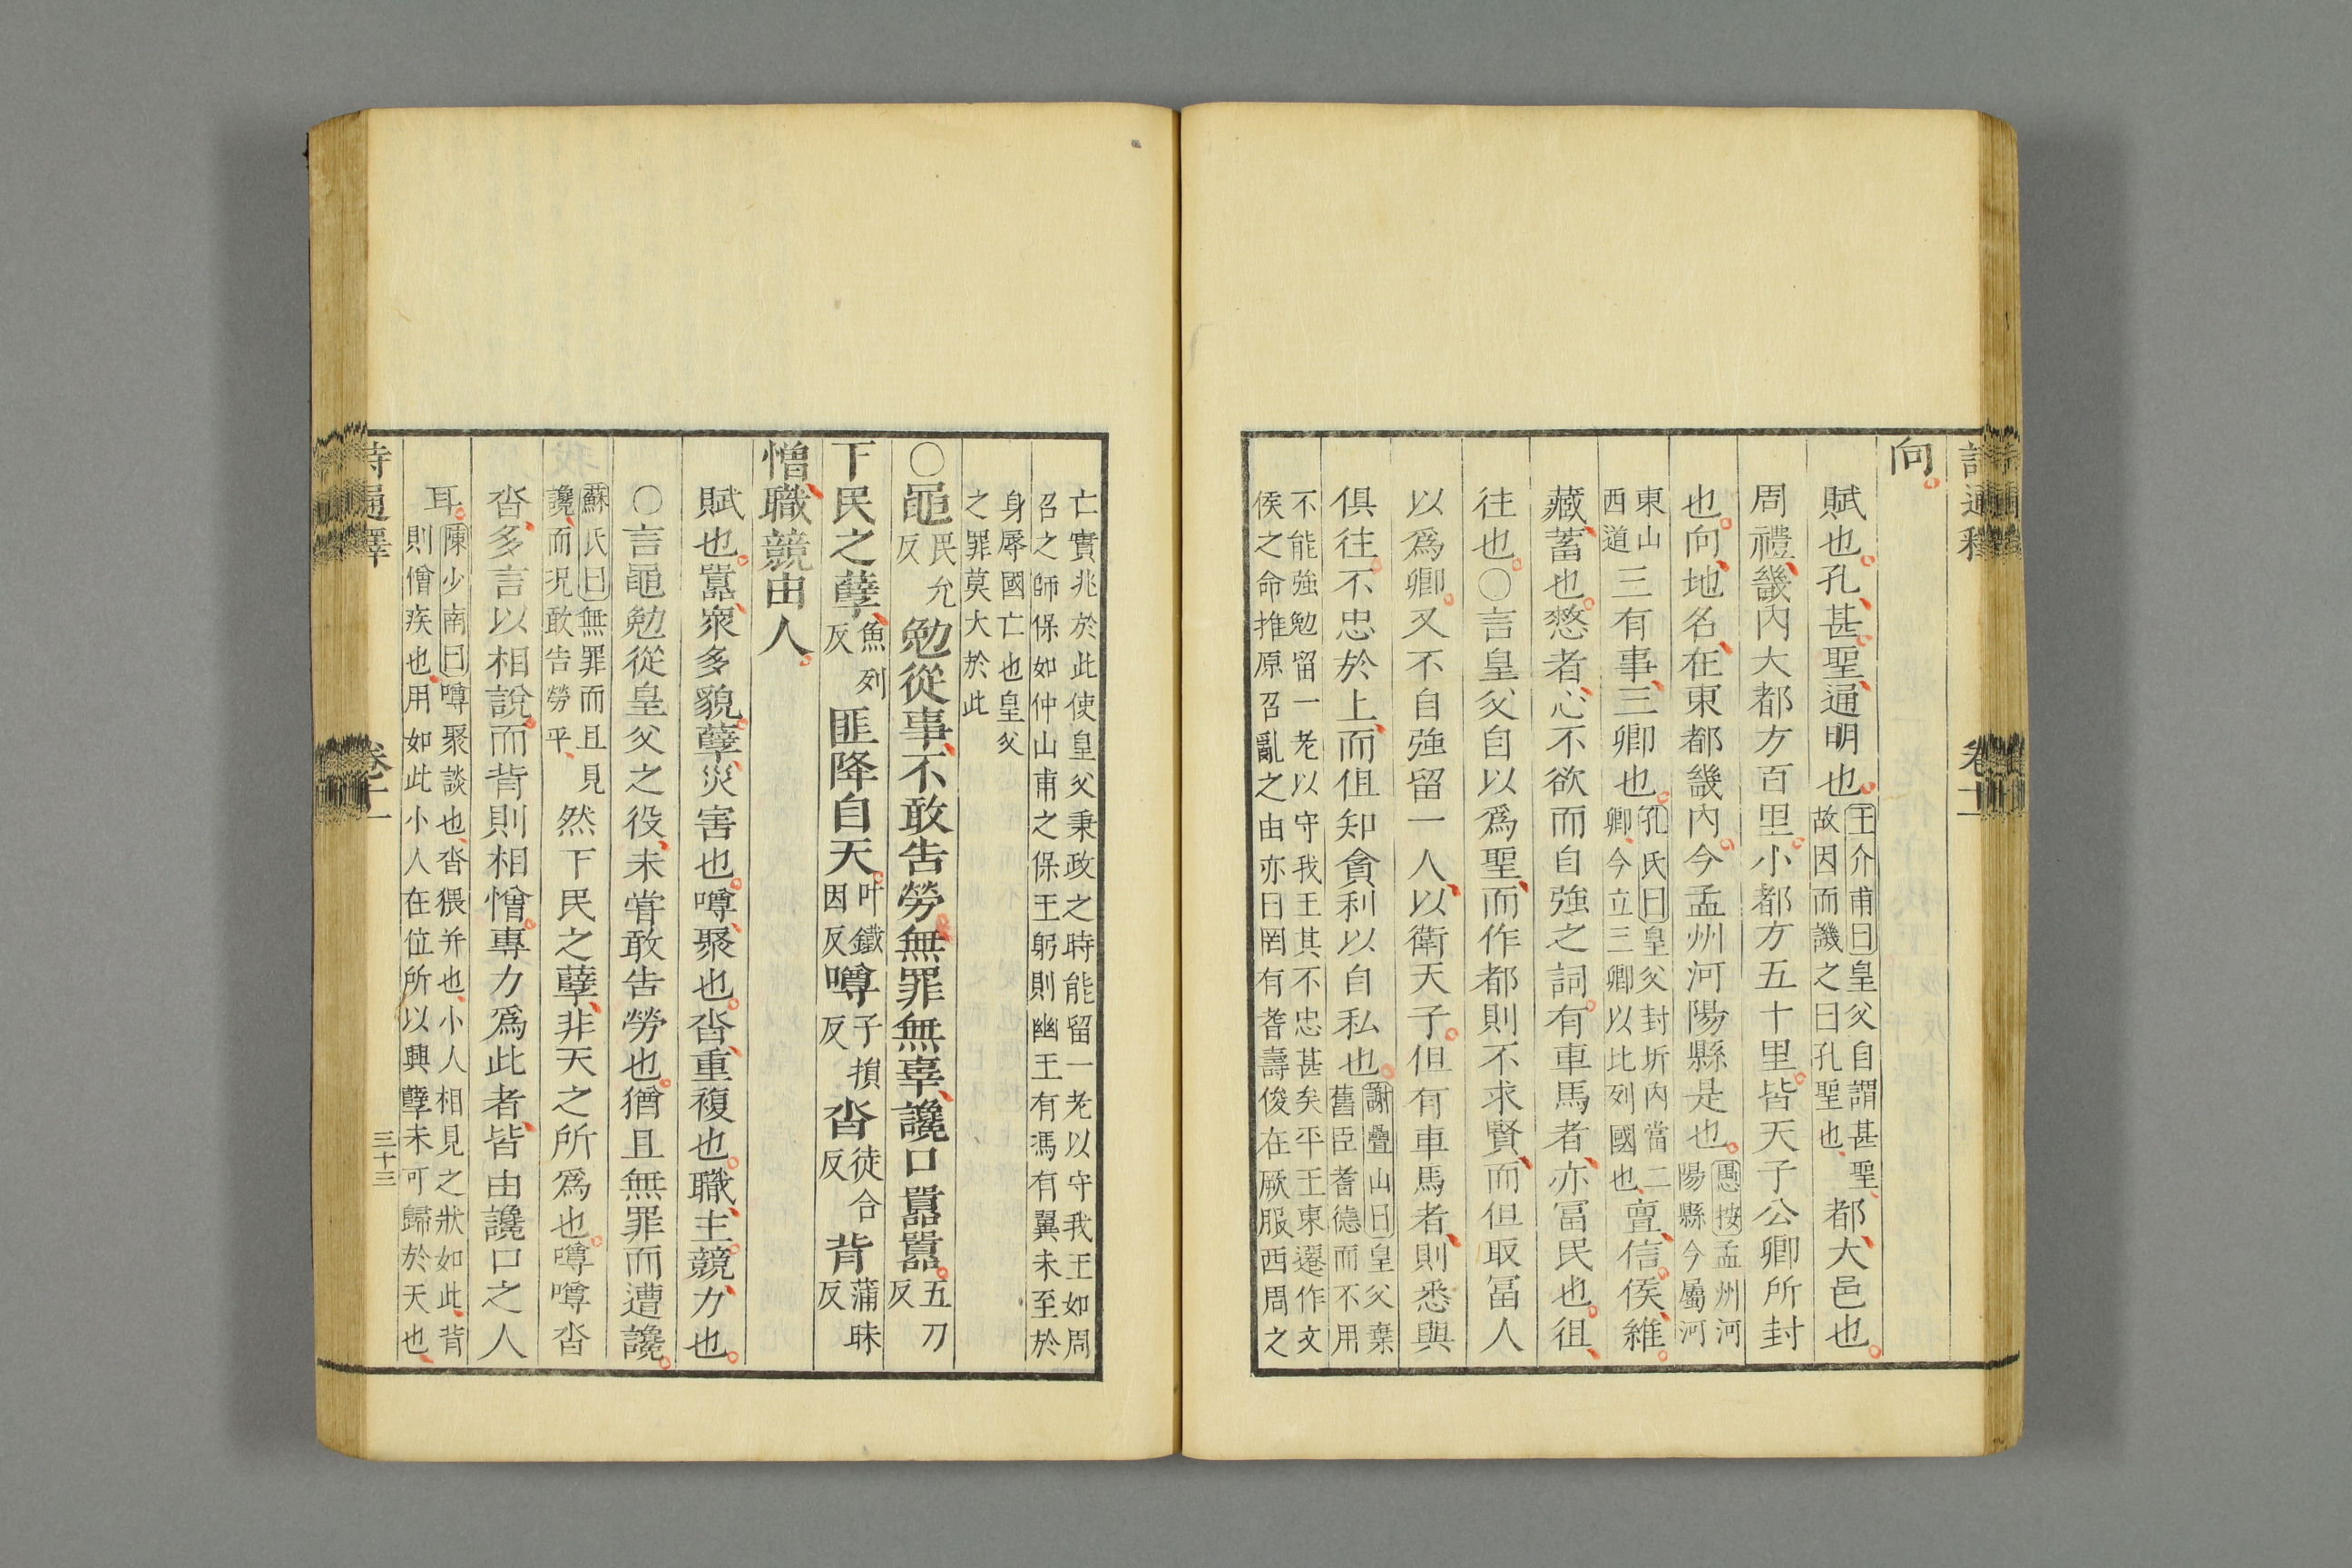 詩通釋　卷十一
向。
賦也。孔、甚。聖、通明也。王介甫曰皇父自謂甚聖、故因而譏之曰孔聖也、都、大邑也。
周禮、畿內大都方百里。小都方五十里。皆天子公卿所封
也。向、地名、在東都畿內。今孟州河陽縣是也。愚按孟州河陽縣今屬河
東山西道三有事、三卿也。孔氏曰皇父封圻內當二卿、今立三卿以比列國也、亶、信。侯、維。
藏、蓄也。憖者、心不欲而自強之詞。有車馬者、亦富民也。徂、
徃也。○言皇父自以爲聖、而作都則不求賢、而但取冨人
以爲卿。又不自強留一人、以衛天子。但有車馬者、則悉與
俱徃。不忠於上、而但知貪利以自私也。謝疊山曰皇父棄舊臣耆德而不用
不能強勉留一老以守我王其不忠甚矣平王東遷作文
侯之命推原召亂之由亦曰罔有耆壽俊在厥服西周之
亡實兆於此使皇父秉政之時能留一老以守我王如周
召之師保如仲山甫之保王躬則幽王有馮有翼未至於
身辱國亡也皇父
之罪莫大於此
○黽民允反勉從事、不敢告勞。無罪無辜、讒口囂囂。五刀反
下民之孽、魚列反匪降自天。叶鐵因反噂子損反沓徒合反背蒲昧反
憎、職競由人。
賦也。囂、衆多貌。孽、災害也。噂、聚也。沓、重複也。職、主。競、力也。
○言黽勉從皇父之役、未甞敢告勞也。猶且無罪而遭讒。
蘇氏曰無罪而且見讒、而况敢告勞乎、然下民之孽、非天之所爲也。噂噂沓
沓、多言以相說。而背則相憎。專力爲此者、皆由讒口之人
耳。陳少南曰噂聚談也、沓猥并也、小人相見之狀如此、背則僧疾也、用如此小人在位所以興孽未可歸於天也、
詩通釋　卷十一　三十三